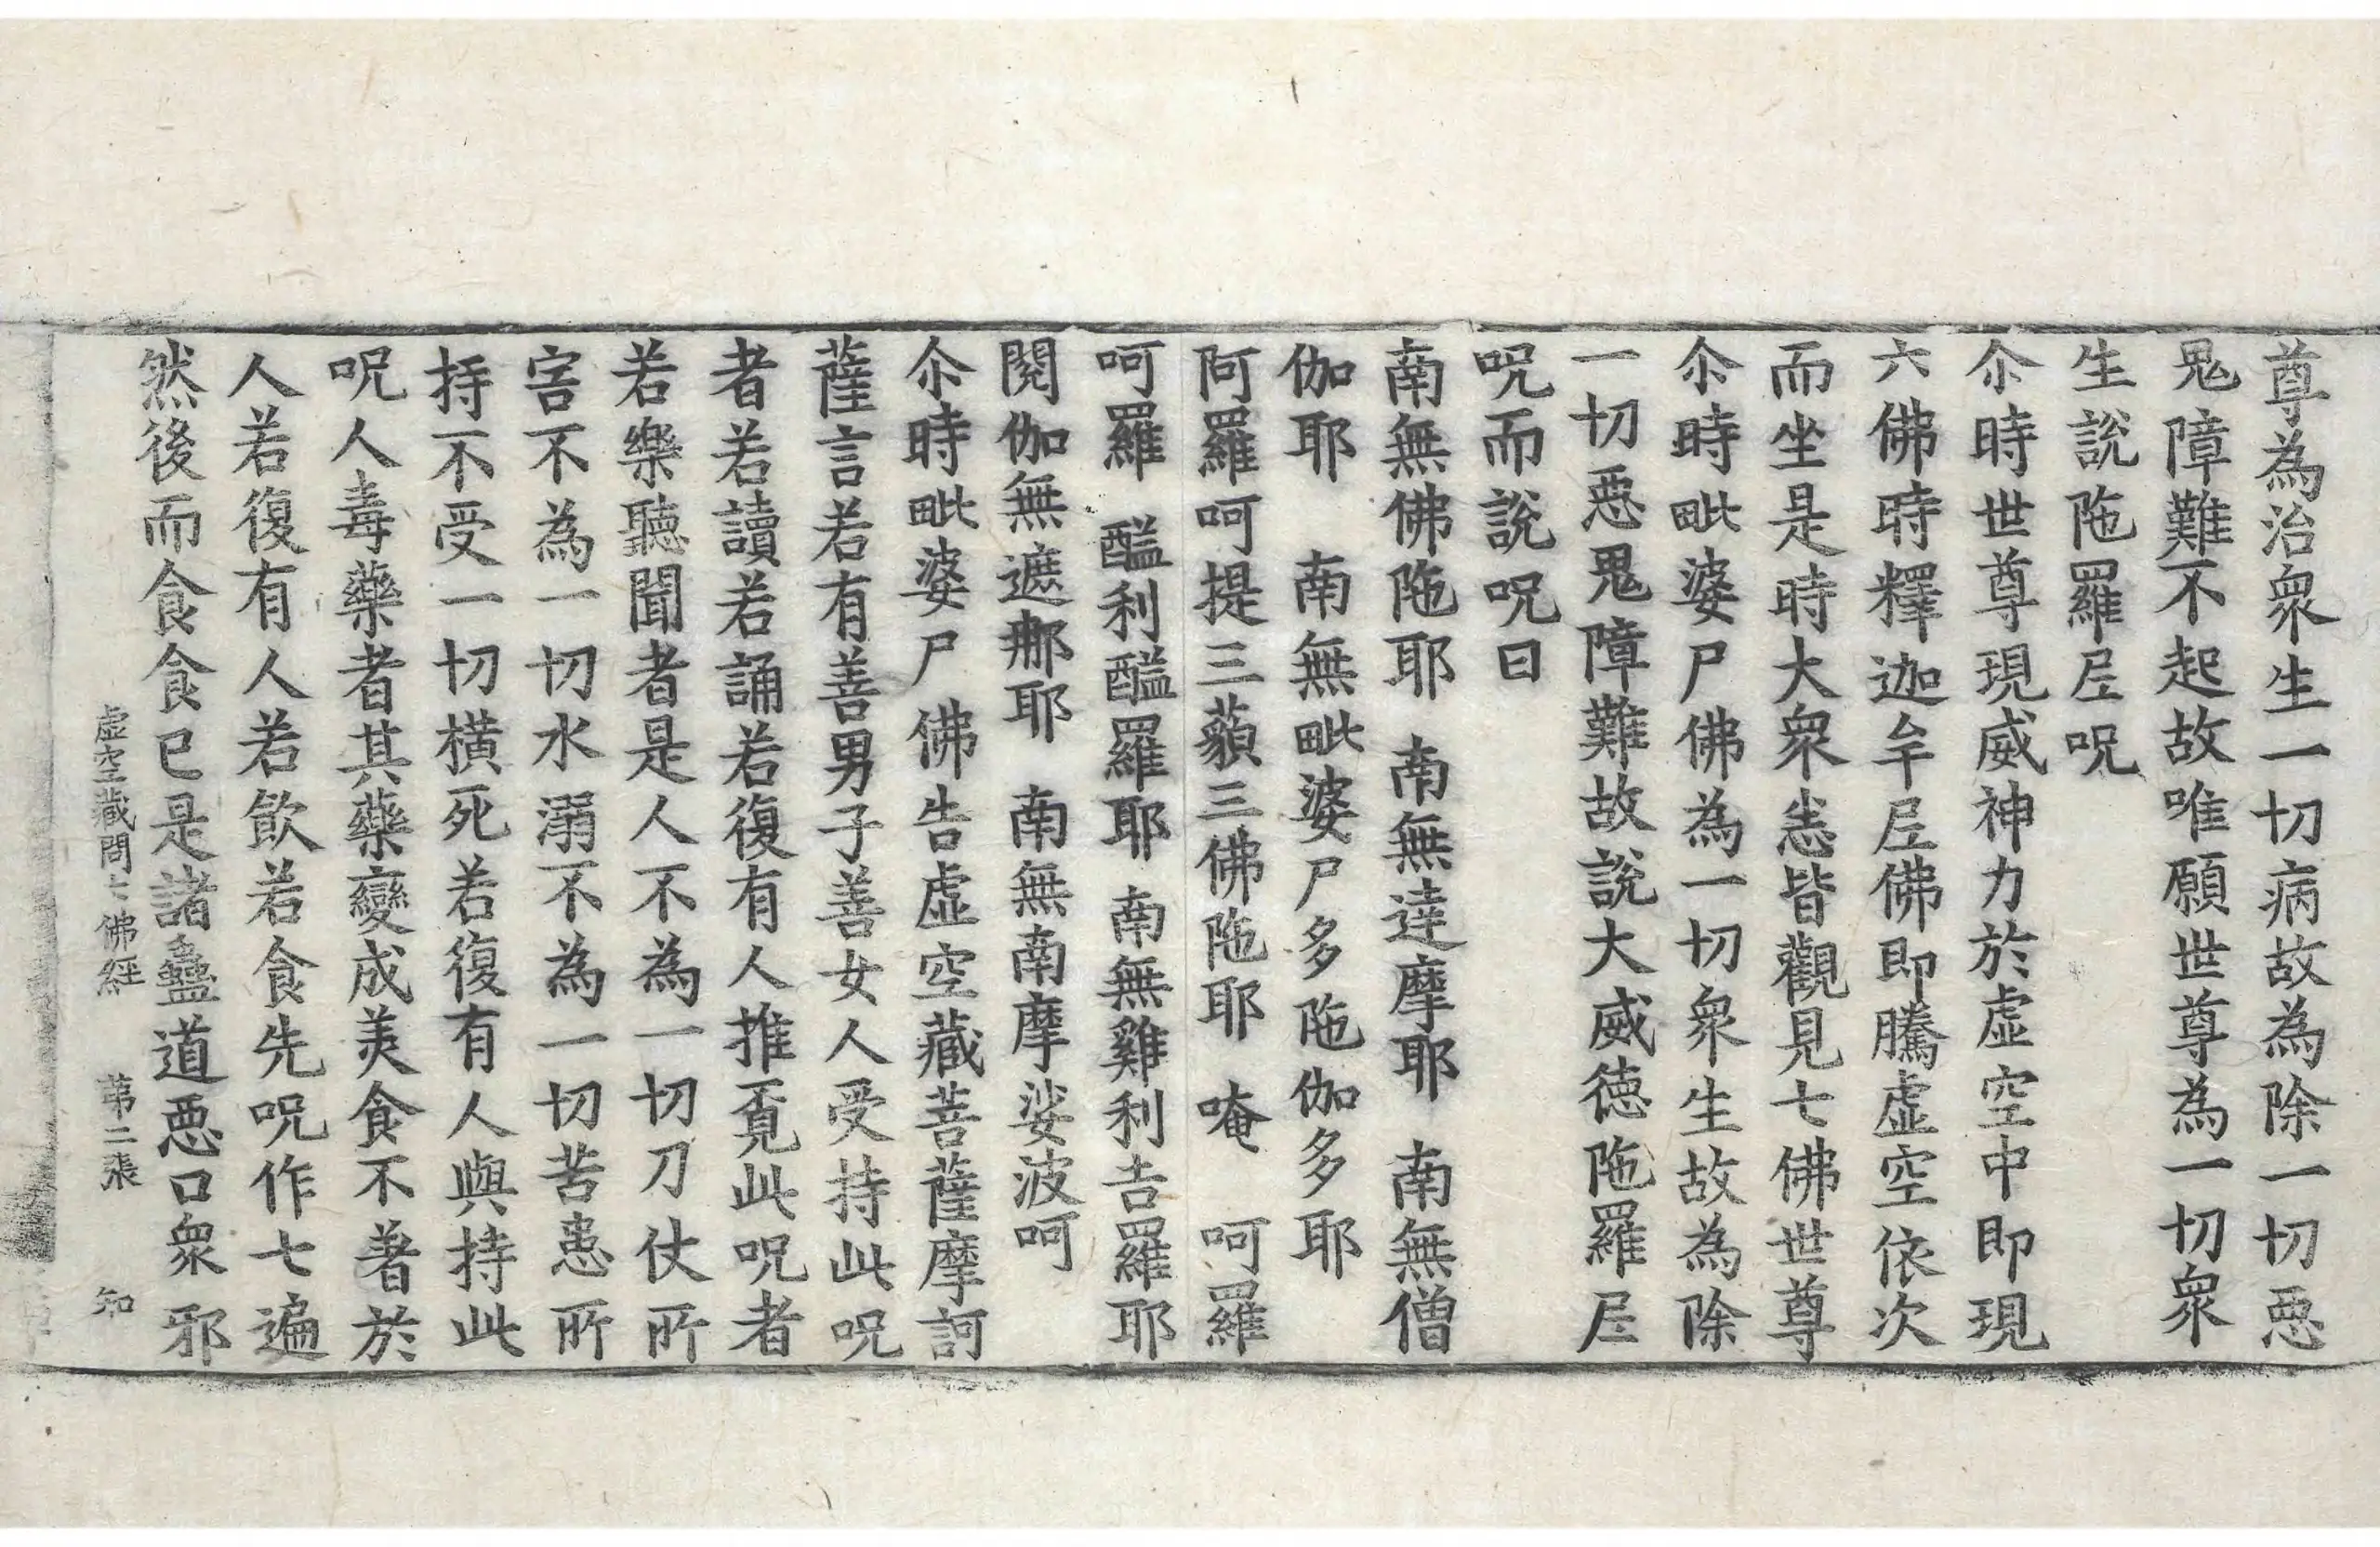 尊為治衆生一切病故為除一切惡
鬼障難不起故唯願世尊為一切衆
生說陁羅尼呪
尒時世尊現威神力於虛空中即現
六佛時釋迦牟尼佛即騰虛空依次
而坐是時大衆悉皆觀見七佛世尊
尒時毗婆尸佛為一切衆生故為除
一切惡鬼障難故說大威德陁羅尼
呪而說呪曰
南無佛陁耶　南無達摩耶　南無僧
伽耶　南無毗婆尸多陁伽多耶
阿羅呵提三藐三佛陁耶　唵　呵羅
呵羅　醯利醯羅耶　南無雞利吉羅耶
閱伽無遮那耶　南無南摩娑波呵
尒時毗婆尸佛告虛空藏菩薩摩訶
薩言若有善男子善女人受持此呪
者若讀若誦若復有人推覓此呪者
若樂聽聞者是人不為一切刀仗所
害不為一切水溺不為一切苦患所
持不受一切橫死若復有人與持此
呪人毒藥者其藥變成美食不著於
人若復有人若飲若食先呪作七遍
然後而食食已是諸蠱道惡口衆邪
虛空藏問七佛經　第二張　知